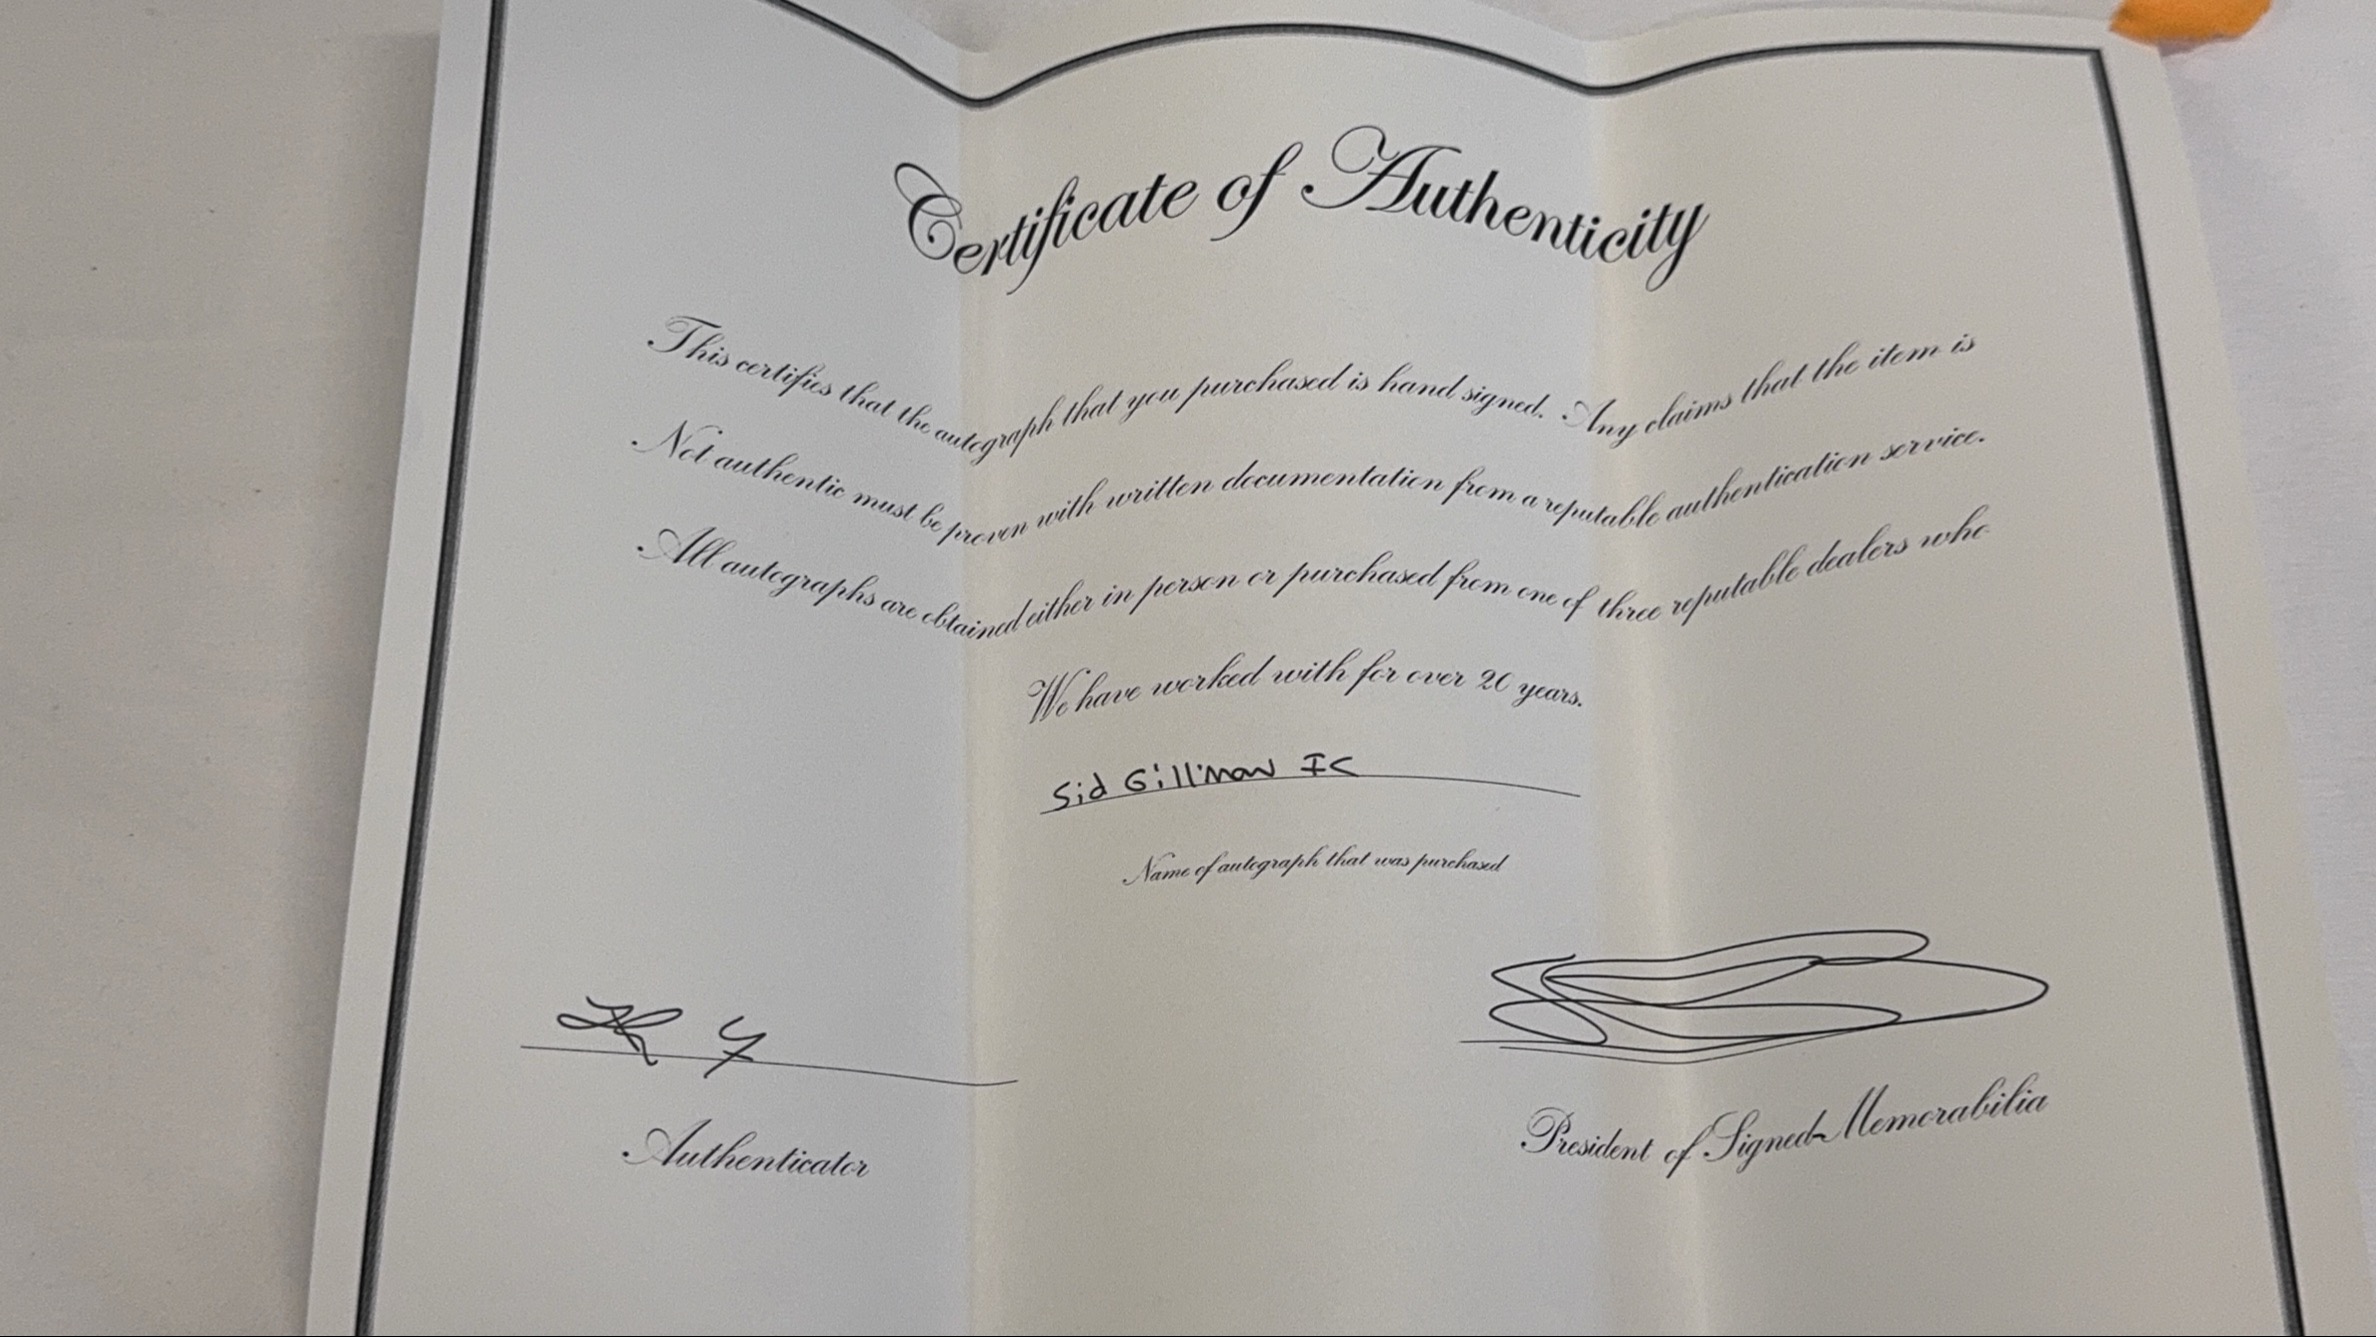 Certificate of Authenticity
This certifies that the autograph that you purchased is hand signed. Any claims that the item is
Not authentic must be proven with written documentation from a reputable authentication service.
All autographs are obtained either in person or purchased from one of three reputable dealers who
We have worked with for over 20 years.
Sid Gillman IC
Name of autograph that was purchased
Authenticator
President of Signed-Memorabilia